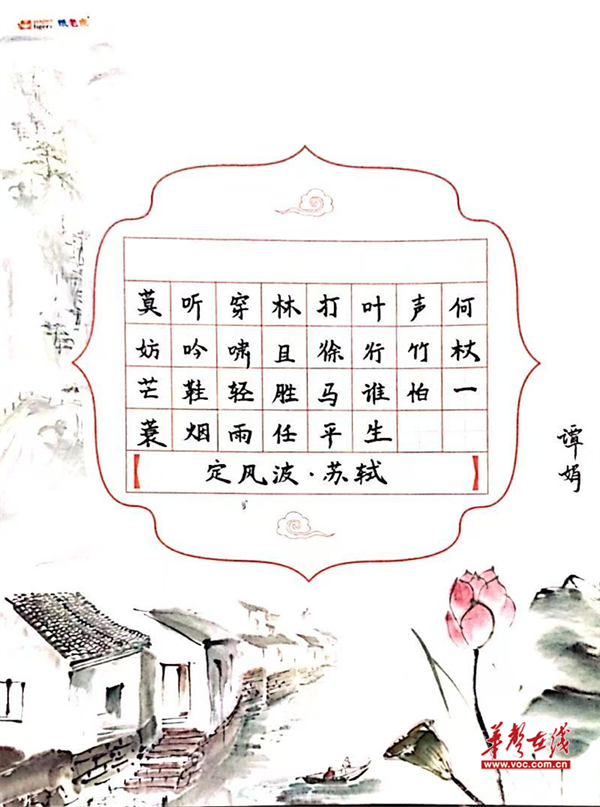 纸老虎
莫听穿林打叶声何
妨吟啸且徐行竹杖
芒鞋轻胜马谁怕一
蓑烟雨任平生
【定风波·苏轼】
谭娟
华声在线
www.voc.com.cn